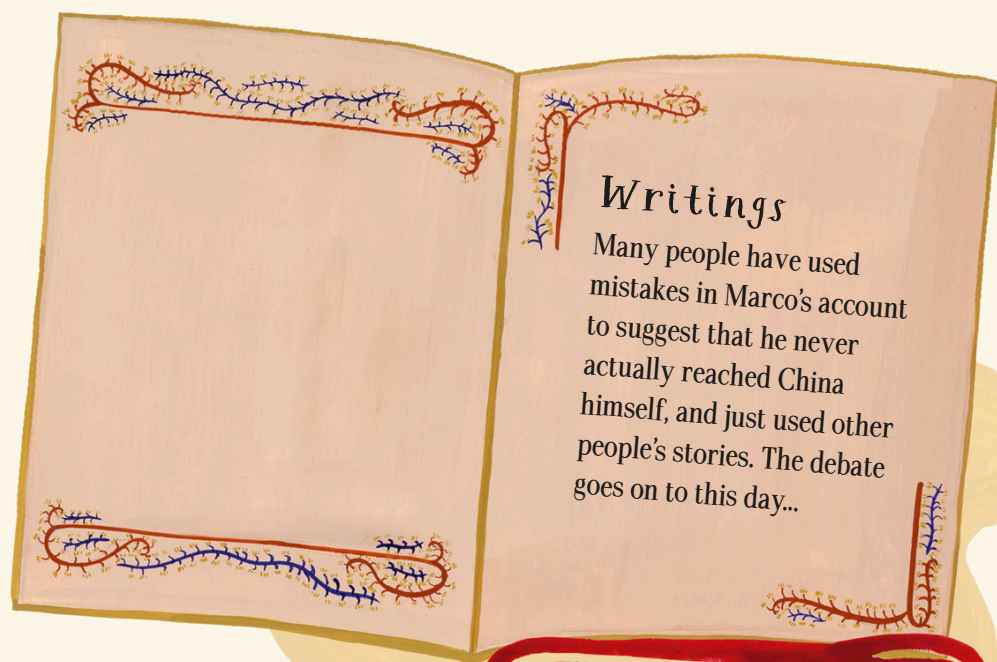 Writings
Many people have used
mistakes in Marco’s account
to suggest that he never
actually reached China
himself, and just used other
people’s stories. The debate
goes on to this day...